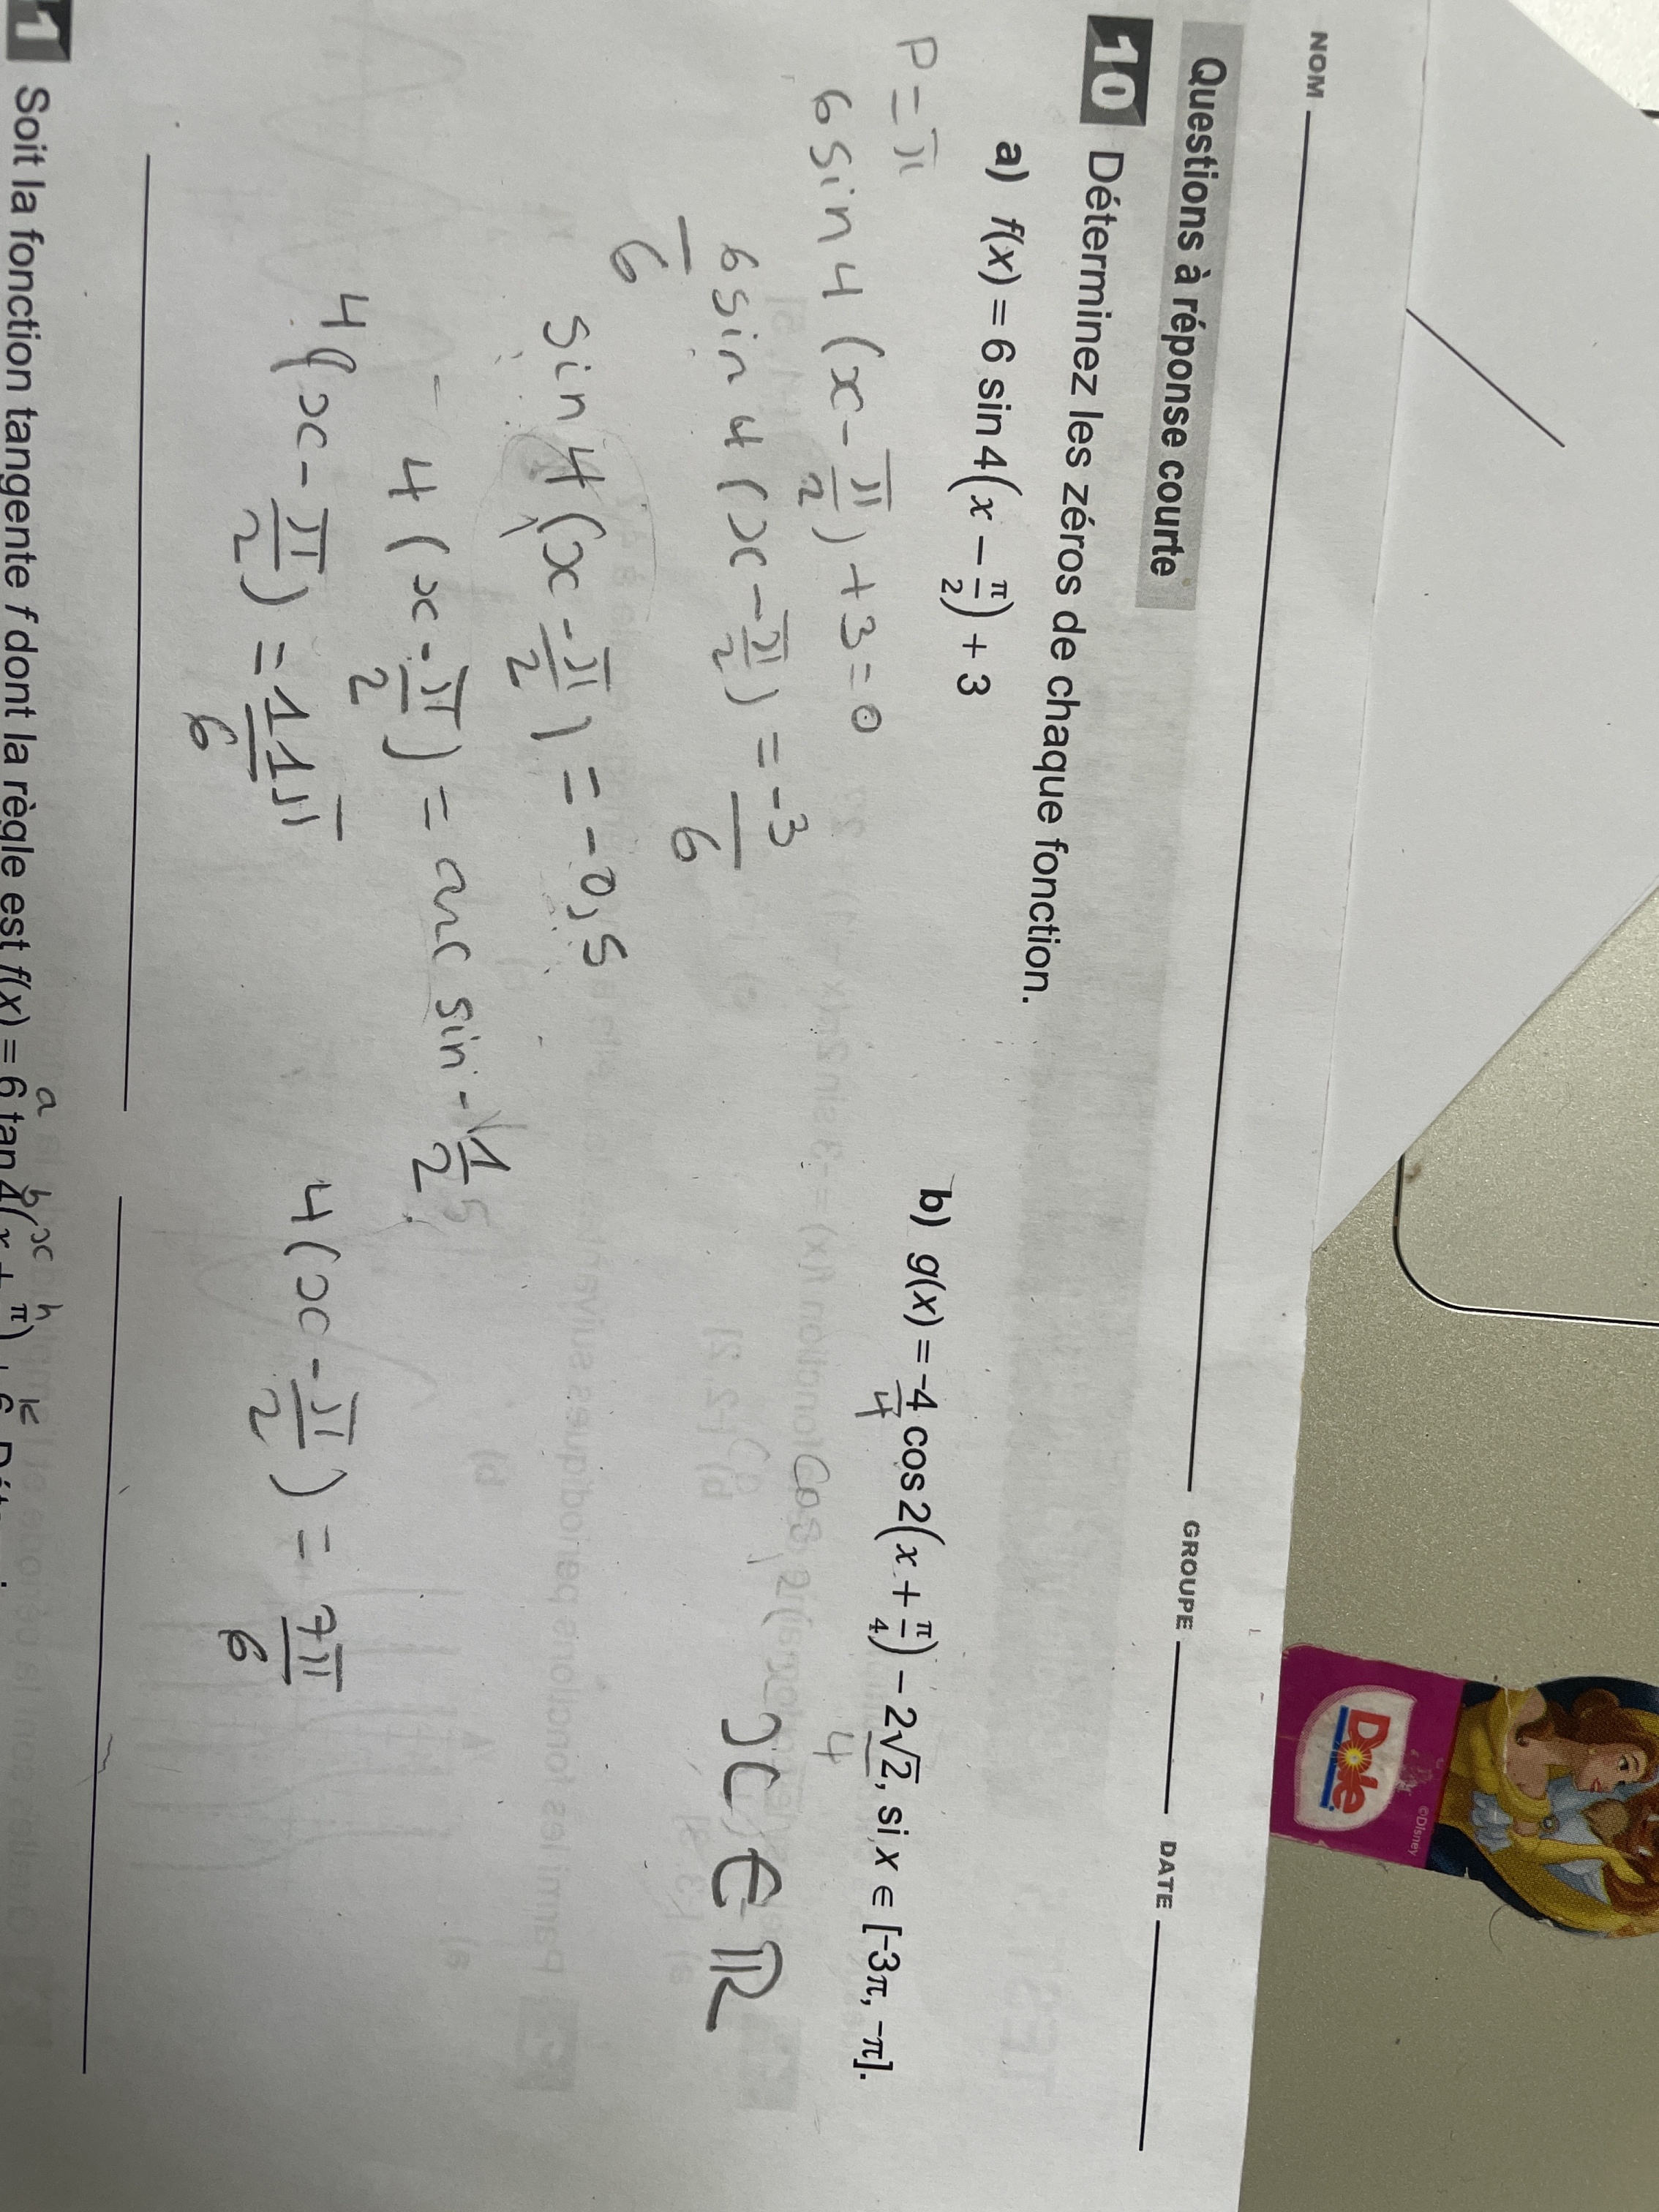 NOM GROUPE DATE
Questions à réponse courte
10 Déterminez les zéros de chaque fonction.
a) f(x) = 6 sin 4(x − π/2) + 3
P = π
6 sin 4 (x - π/2) + 3 = 0
6 sin 4 (x - π/2) = -3
6 6
sin 4 (x - π/2) = -0,5
4 (x - π/2) = arc sin - 1/2
4 (x - π/2) = 11π/6
4 (x - π/2) = 7π/6
b) g(x) = -4 cos 2(x + π/4) − 2√2, si x ∈ [-3π, -π].
4 4
x ∈ ℝ
a b x h k
1 Soit la fonction tangente f dont la règle est f(x) = 6 tan 4(x + π
Dole
©Disney